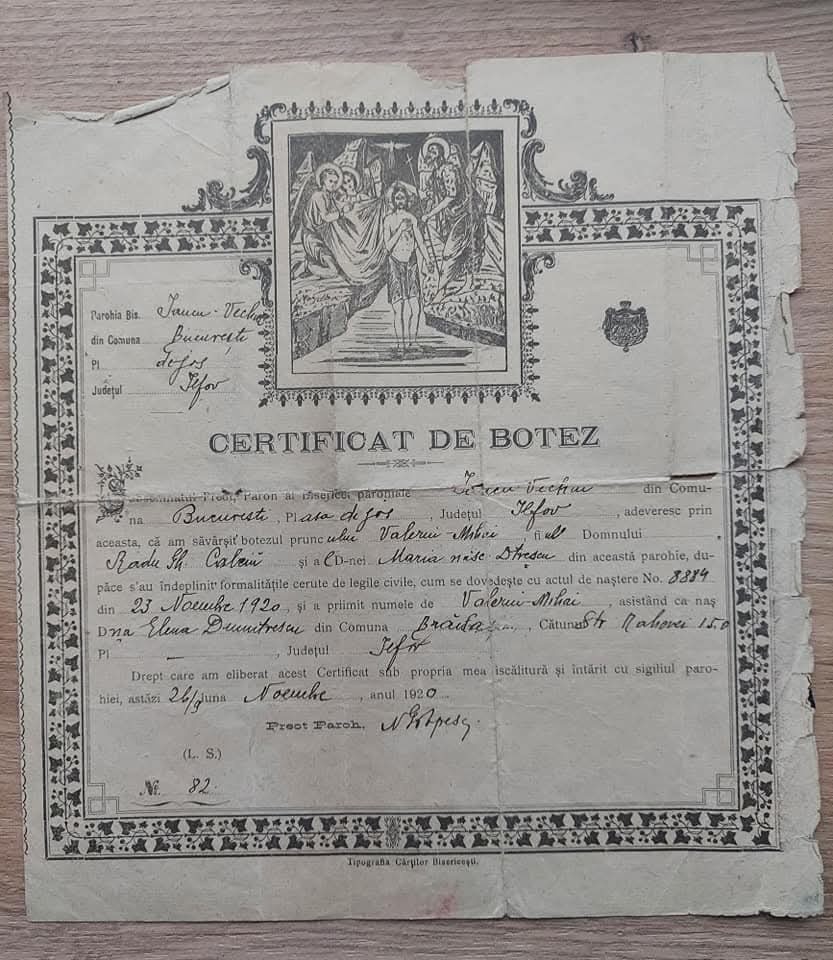 Parohia Bis. Iancu-Vechiu
din Comuna București
Pl de jos
Județul Ilfov
CERTIFICAT DE BOTEZ
Subsemnatul Preot, Paroh al Bisericei parohiale Iancu Vechiu din Comu-
na Bucuresti, Plasa de jos, Județul Ilfov, adeveresc prin
aceasta, că am săvârșit botezul pruncului Valeriu-Mihai fiul Domnului
Radu Gh. și al D-nei Maria născ. din această parohie, du-
păce s'au îndeplinit formalitățile cerute de legile civile, cum se dovedește cu actul de naștere No. 8884
din 23 Noembre 1920, și a priimit numele de Valeriu-Mihai, asistând ca naș
Dna Elena Dumitrescu din Comuna, Cătunul Str Rahovei 150
Pl —, Județul Ilfov
Drept care am eliberat acest Certificat sub propria mea iscălitură și întărit cu sigiliul paro-
hiei, astăzi 26 luna Noembre, anul 1920
Preot Paroh,
(L. S.)
No. 82.
Tipografia Cărților Bisericești.